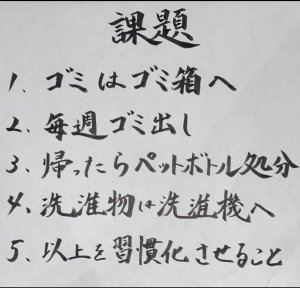 課題
1、ゴミはゴミ箱へ
2、毎週ゴミ出し
3、帰ったらペットボトル処分
4、洗濯物は洗濯機へ
5、以上を習慣化させること